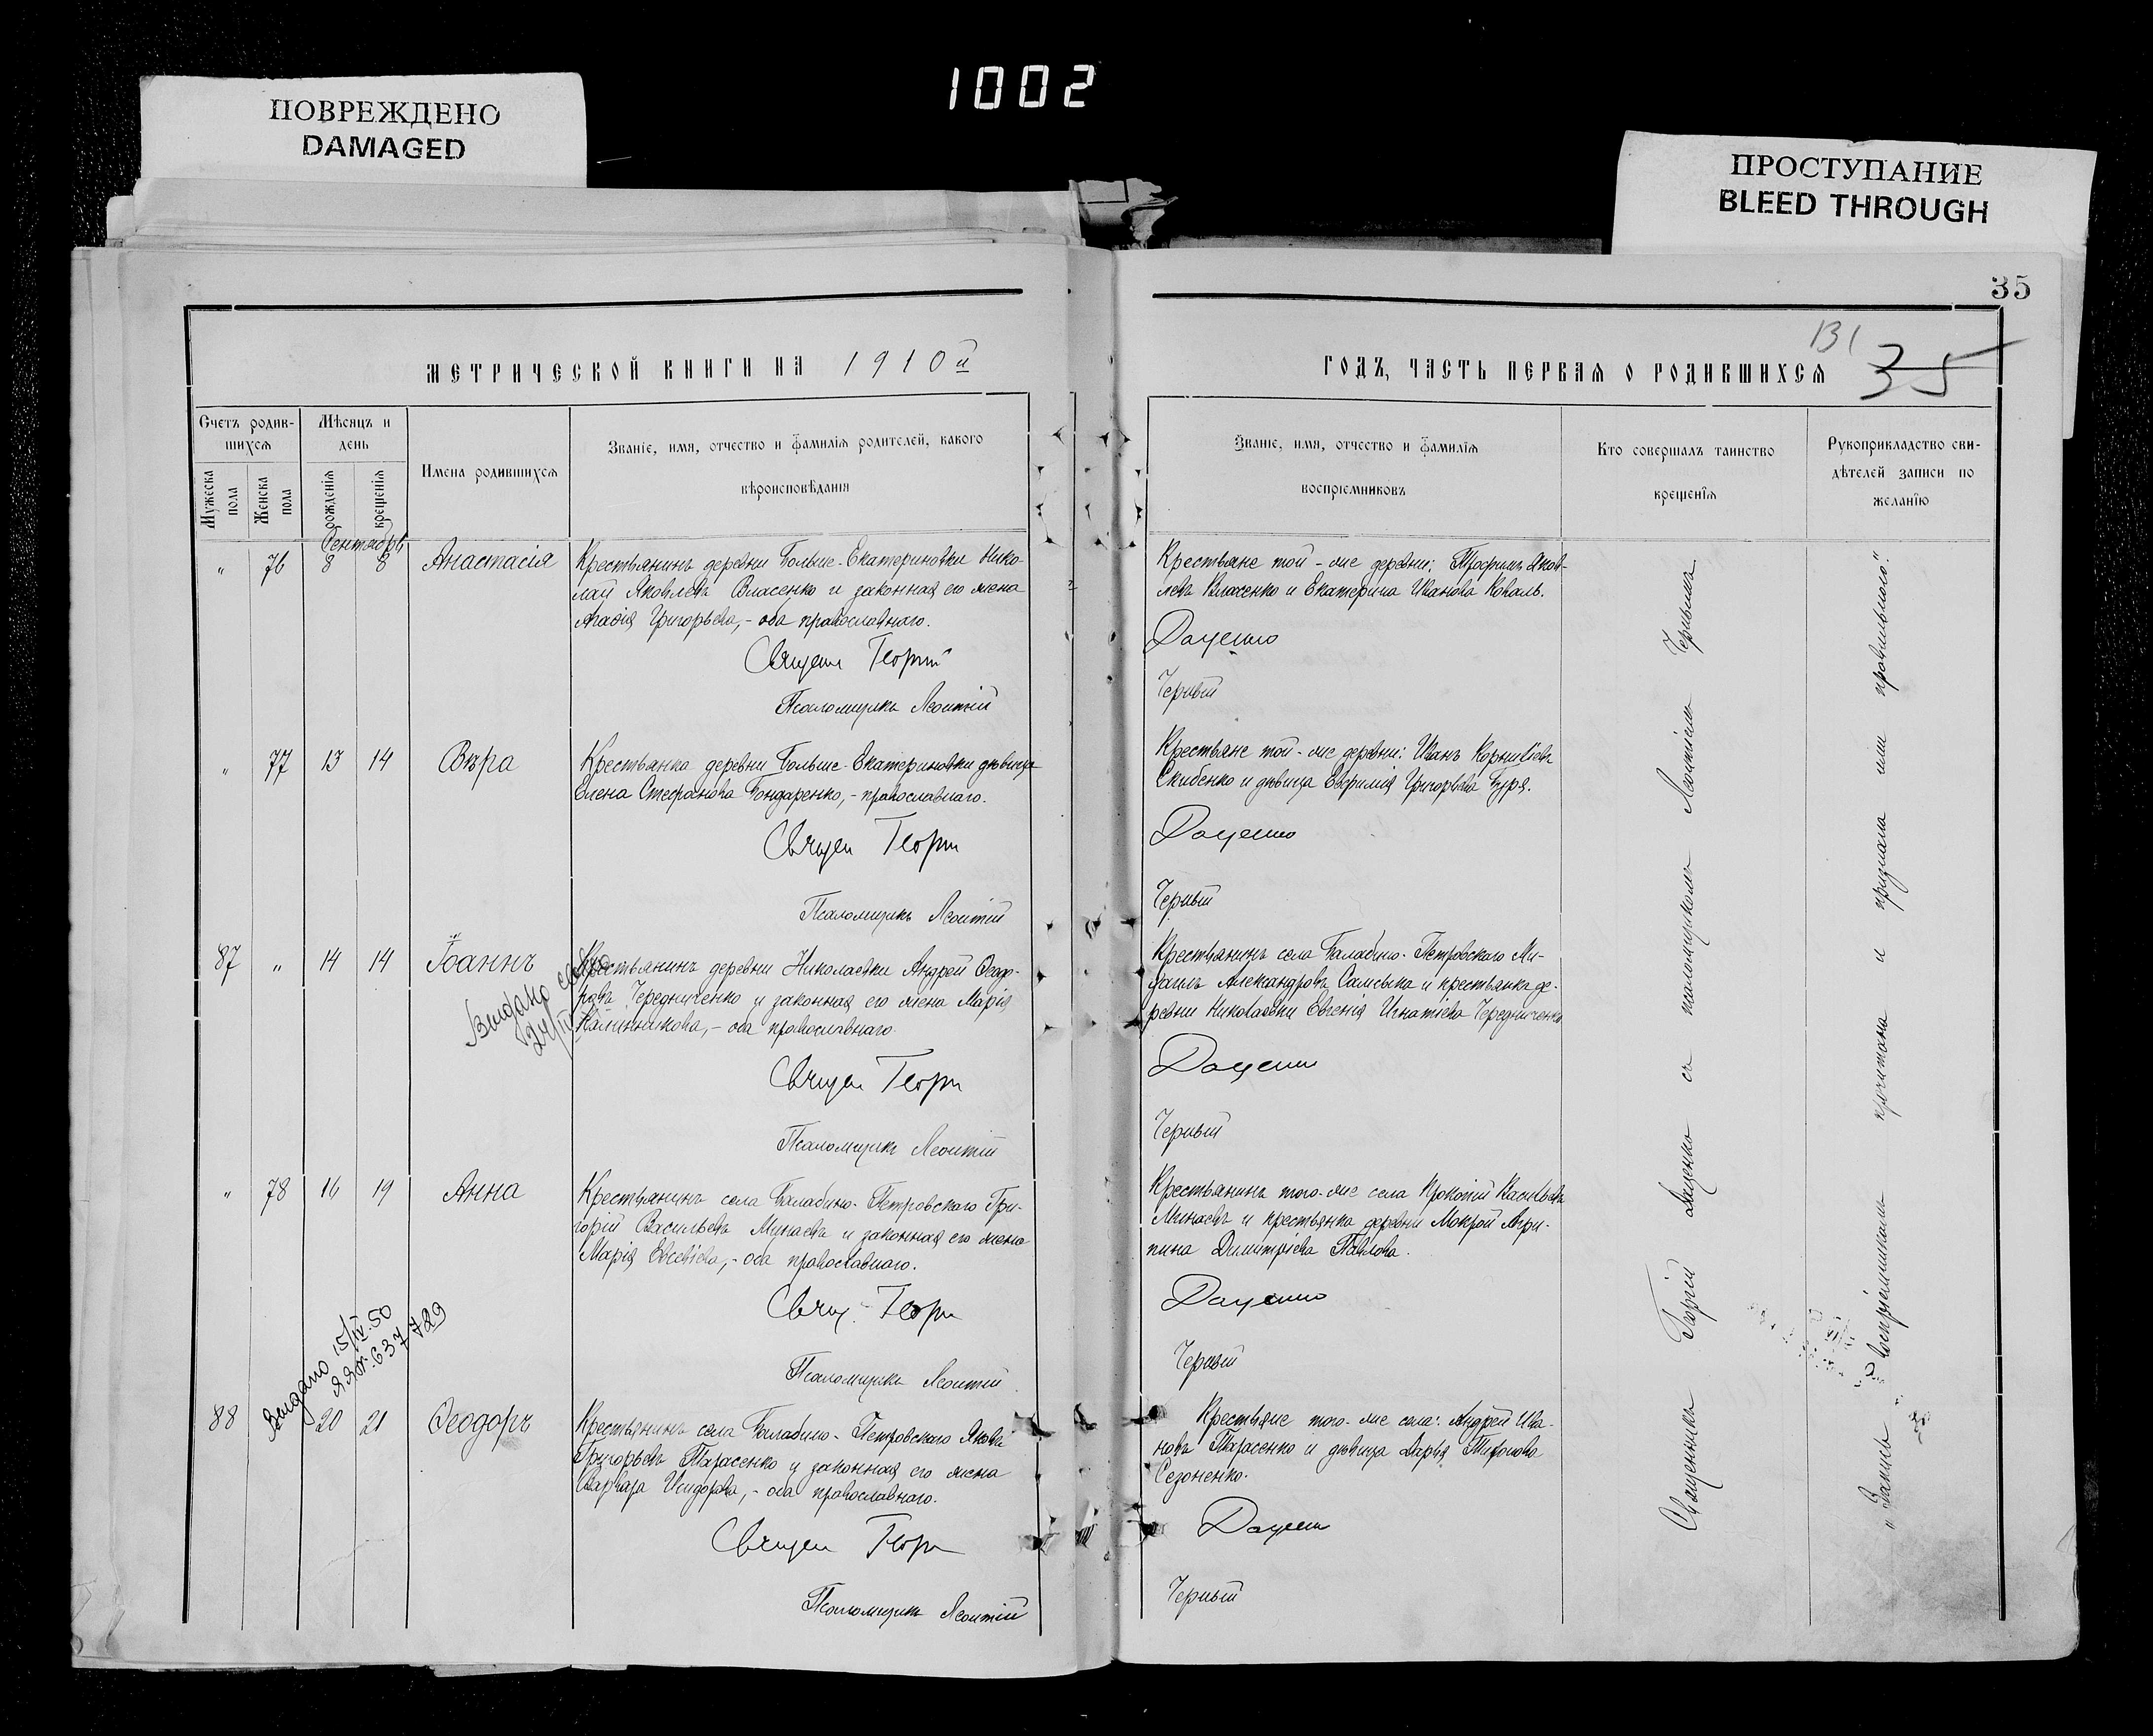 1002
ПОВРЕЖДЕНО
DAMAGED
ПРОСТУПАНИЕ
BLEED THROUGH
35
131
35
МЕТРИЧЕСКОЙ КНИГИ НА 1910й
ГОДЪ, ЧАСТЬ ПЕРВАЯ О РОДИВШИХСЯ
Счетъ родив-
шихся
Мужеска
пола
Женска
пола
Мѣсяцъ и
день
рожденія
крещенія
Имена родившихся
Званіе, имя, отчество и фамилія родителей, какого
вѣроисповѣданія
Званіе, имя, отчество и фамилія
воспріемниковъ
Кто совершалъ таинство
крещенія
Рукоприкладство сви-
дѣтелей записи по
желанію
Сентябрь
" 76 8 8 Анастасія
Крестьянинъ деревни Больше-Екатериновки Нико-
лай Яковлевъ Власенко и законная его жена
Агафія Григорьева,- оба православнаго.
Священ Георгій
Псаломщикъ Леонтій
Крестьяне той-же деревни: Трофимъ Яков-
левъ Власенко и Екатерина Иванова Коваль.
Доценко
Черный
" 77 13 14 Вѣра
Крестьянка деревни Больше-Екатериновки дѣвица
Елена Стефанова Бондаренко,- православнаго.
Священ Георгі
Псаломщикъ Леонтій
Крестьяне той-же деревни: Иванъ Корниліевъ
Скибенко и дѣвица Евфимія Григорьева Буря.
Доценко
Черный
87 " 14 14 Іоаннъ
Выдано
24/IV
Крестьянинъ деревни Николаевки Андрей Ѳеодо-
ровъ Чередниченко и законная его жена Марія
Калинникова,- оба православнаго.
Священ Георгі
Псаломщикъ Леонтій
Крестьянинъ села Балабино-Петровскаго Ми-
хаилъ Александровъ Самсыка и крестьянка де-
ревни Николаевки Евгенія Игнатіева Чередниченко
Доценко
Черный
" 78 16 19 Анна
Крестьянинъ села Балабино-Петровскаго Гри-
горій Васильевъ Минаевъ и законная его жена
Марія Евсевіева,- оба православнаго.
Свящ. Георгі
Псаломщикъ Леонтій
Крестьянинъ того-же села Прокопій Васильевъ
Минаевъ и крестьянка деревни Мокрой Агри-
пина Димитріева Павлова.
Доценко
Черный
Выдано 15/IV.50
637729
88 20 21 Ѳеодоръ
Крестьянинъ села Балабино-Петровскаго Яковъ
Григорьевъ Тарасенко и законная его жена
Варвара Исидорова,- оба православнаго.
Священ Георг
Псаломщикъ Леонтій
Крестьяне того-же села: Андрей Ива-
новъ Тарасенко и дѣвица Дарья Тихонова
Сезоненко.
Доценко
Черный
Священникъ Георгій Доценко съ псаломщикомъ Леонтіемъ Чернымъ
"Запись воспріемникамъ прочитана и признана ими правильною."